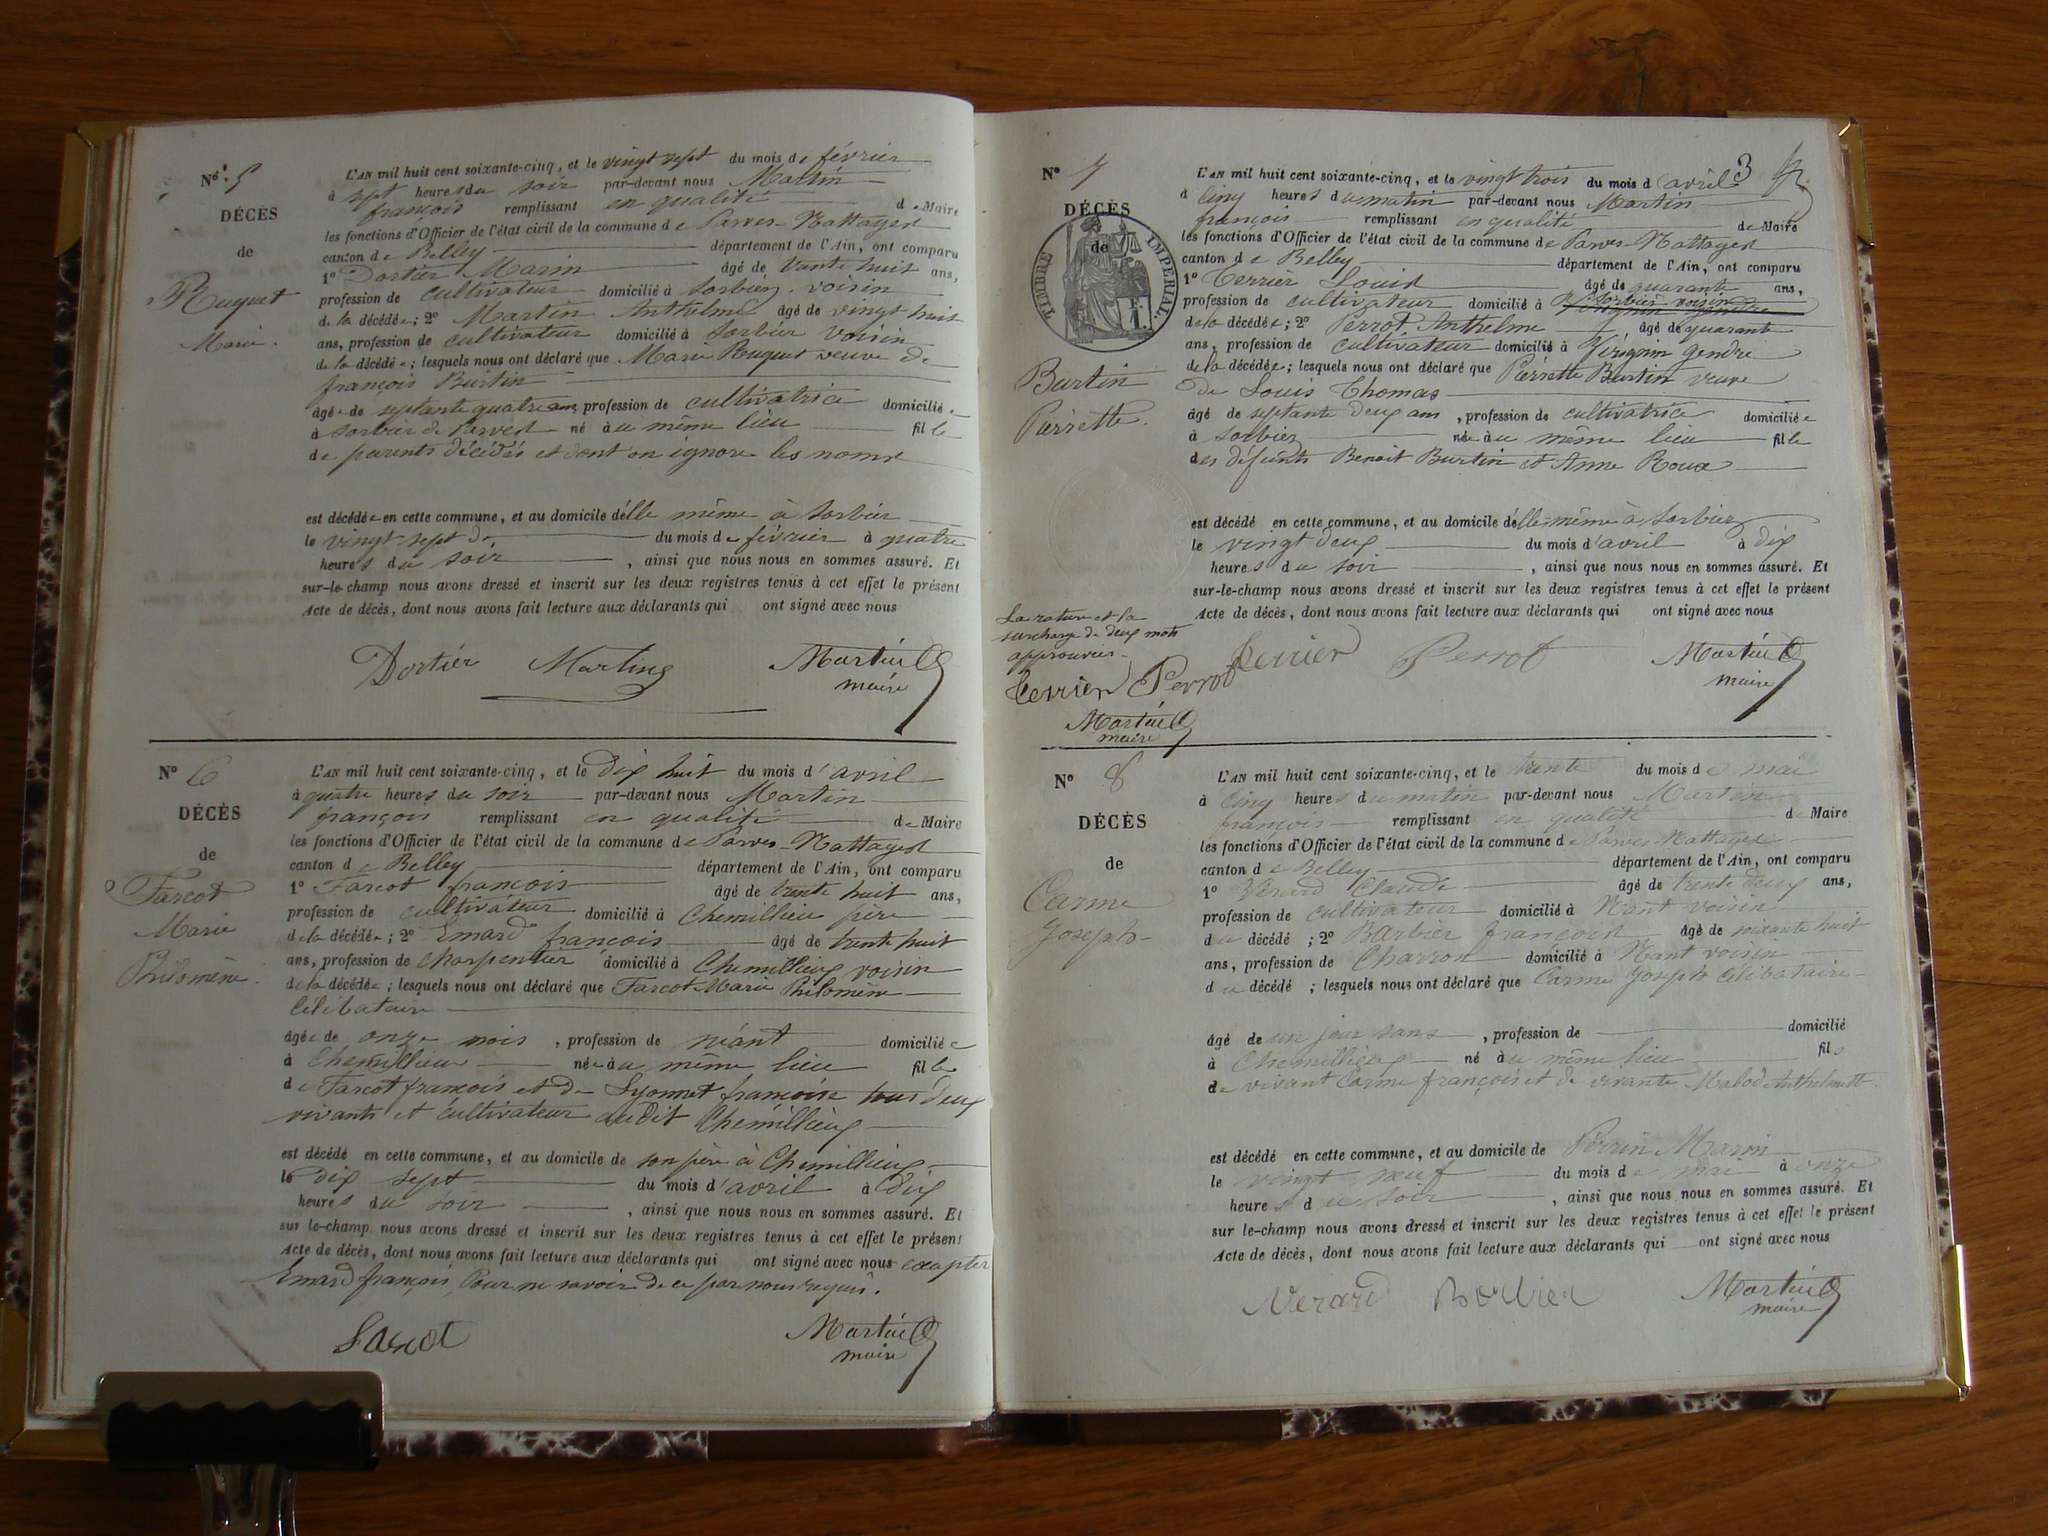 N° 5
DÉCÈS
de
Ruquet
Marie.
L'AN mil huit cent soixante-cinq, et le vingt sept du mois de février
à sept heures du soir par-devant nous Martin
françois remplissant en qualité de Maire
les fonctions d'Officier de l'état civil de la commune de Parves-Nattages
canton de Belley département de l'Ain, ont comparu
1° Dortier Marin âgé de trente huit ans,
profession de cultivateur domicilié à Sorbier voisin
de la décédée; 2° Martin Anthelme âgé de vingt huit
ans, profession de cultivateur domicilié à Sorbier voisin
de la décédée; lesquels nous ont déclaré que Marie Ruquet veuve de
françois Burtin
âgée de septante quatre ans, profession de cultivatrice domiciliée
à Sorbier de Parves né au même lieu fille
de parents décédés et dont on ignore les noms
est décédée en cette commune, et au domicile d'elle même à Sorbier
le vingt sept de du mois de février à quatre
heures du soir, ainsi que nous nous en sommes assuré. Et
sur-le-champ nous avons dressé et inscrit sur les deux registres tenus à cet effet le présent
Acte de décès, dont nous avons fait lecture aux déclarants qui ont signé avec nous
Dortier Martin Martin
maire
N° 6
DÉCÈS
de
Farcot
Marie
Philomène.
L'AN mil huit cent soixante-cinq, et le dix huit du mois d'avril
à quatre heures du soir par-devant nous Martin
françois remplissant en qualité de Maire
les fonctions d'Officier de l'état civil de la commune de Parves-Nattages
canton de Belley département de l'Ain, ont comparu
1° Farcot françois âgé de trente huit ans,
profession de cultivateur domicilié à Chemillieu père
de la décédée; 2° Emard françois âgé de trente huit
ans, profession de charpentier domicilié à Chemillieu voisin
de la décédée; lesquels nous ont déclaré que Farcot Marie Philomène
célibataire
âgée de onze mois, profession de néant domiciliée
à Chemillieu née au même lieu fille
de Farcot françois et de Lyonnet françoise tous deux
vivants et cultivateur audit Chemillieu
est décédé en cette commune, et au domicile de son père à Chemillieu
le dix sept du mois d'avril à dix
heures du soir, ainsi que nous nous en sommes assuré. Et
sur le-champ nous avons dressé et inscrit sur les deux registres tenus à cet effet le présent
Acte de décès, dont nous avons fait lecture aux déclarants qui ont signé avec nous excepter
Emard françois, pour ne savoir de ce par nous requis.
Farcot Martin
maire
3
N° 7
DÉCÈS
de
TIMBRE IMPERIAL
Burtin
Pierrette.
L'AN mil huit cent soixante-cinq, et le vingt trois du mois d'avril
à cinq heures du matin par-devant nous Martin
françois remplissant en qualité de Maire
les fonctions d'Officier de l'état civil de la commune de Parves-Nattages
canton de Belley département de l'Ain, ont comparu
1° Terrier Louis âgé de quarante ans,
profession de cultivateur domicilié à Sorbier voisin
de la décédée; 2° Perrot Anthelme âgé de quarante
ans, profession de cultivateur domicilié à Virignin gendre
de la décédée; lesquels nous ont déclaré que Pierrette Burtin veuve
de Louis Thomas
âgé de septante deux ans, profession de cultivatrice domiciliée
à Sorbier née au même lieu fille
des défunts Benoit Burtin et Anne Roux
est décédé en cette commune, et au domicile d'elle même à Sorbier
le vingt deux du mois d'avril à dix
heures du soir, ainsi que nous nous en sommes assuré. Et
sur-le-champ nous avons dressé et inscrit sur les deux registres tenus à cet effet le présent
Acte de décès, dont nous avons fait lecture aux déclarants qui ont signé avec nous
La rature et la
surcharge de deux mots
approuvées.
Terrier Perrot Martin
maire
Terrier Perrot
Martin
maire
N° 8
DÉCÈS
de
Carme
Joseph
L'AN mil huit cent soixante-cinq, et le trente du mois de mai
à cinq heures du matin par-devant nous Martin
françois remplissant en qualité de Maire
les fonctions d'Officier de l'état civil de la commune de Parves-Nattages
canton de Belley département de l'Ain, ont comparu
1° Verard Claude âgé de trente deux ans,
profession de cultivateur domicilié à Nant voisin
du décédé; 2° Barbier françois âgé de soixante huit
ans, profession de Charron domicilié à Nant voisin
du décédé; lesquels nous ont déclaré que Carme Joseph célibataire
âgé de un jour sans, profession de domicilié
à Chemillieu né au même lieu fils
de vivant Carme françois et de vivante Malod Anthelmette
est décédé en cette commune, et au domicile de Perrin Marin
le vingt neuf du mois de mai à onze
heures du soir, ainsi que nous nous en sommes assuré. Et
sur le-champ nous avons dressé et inscrit sur les deux registres tenus à cet effet le présent
Acte de décès, dont nous avons fait lecture aux déclarants qui ont signé avec nous
Verard Barbier Martin
maire